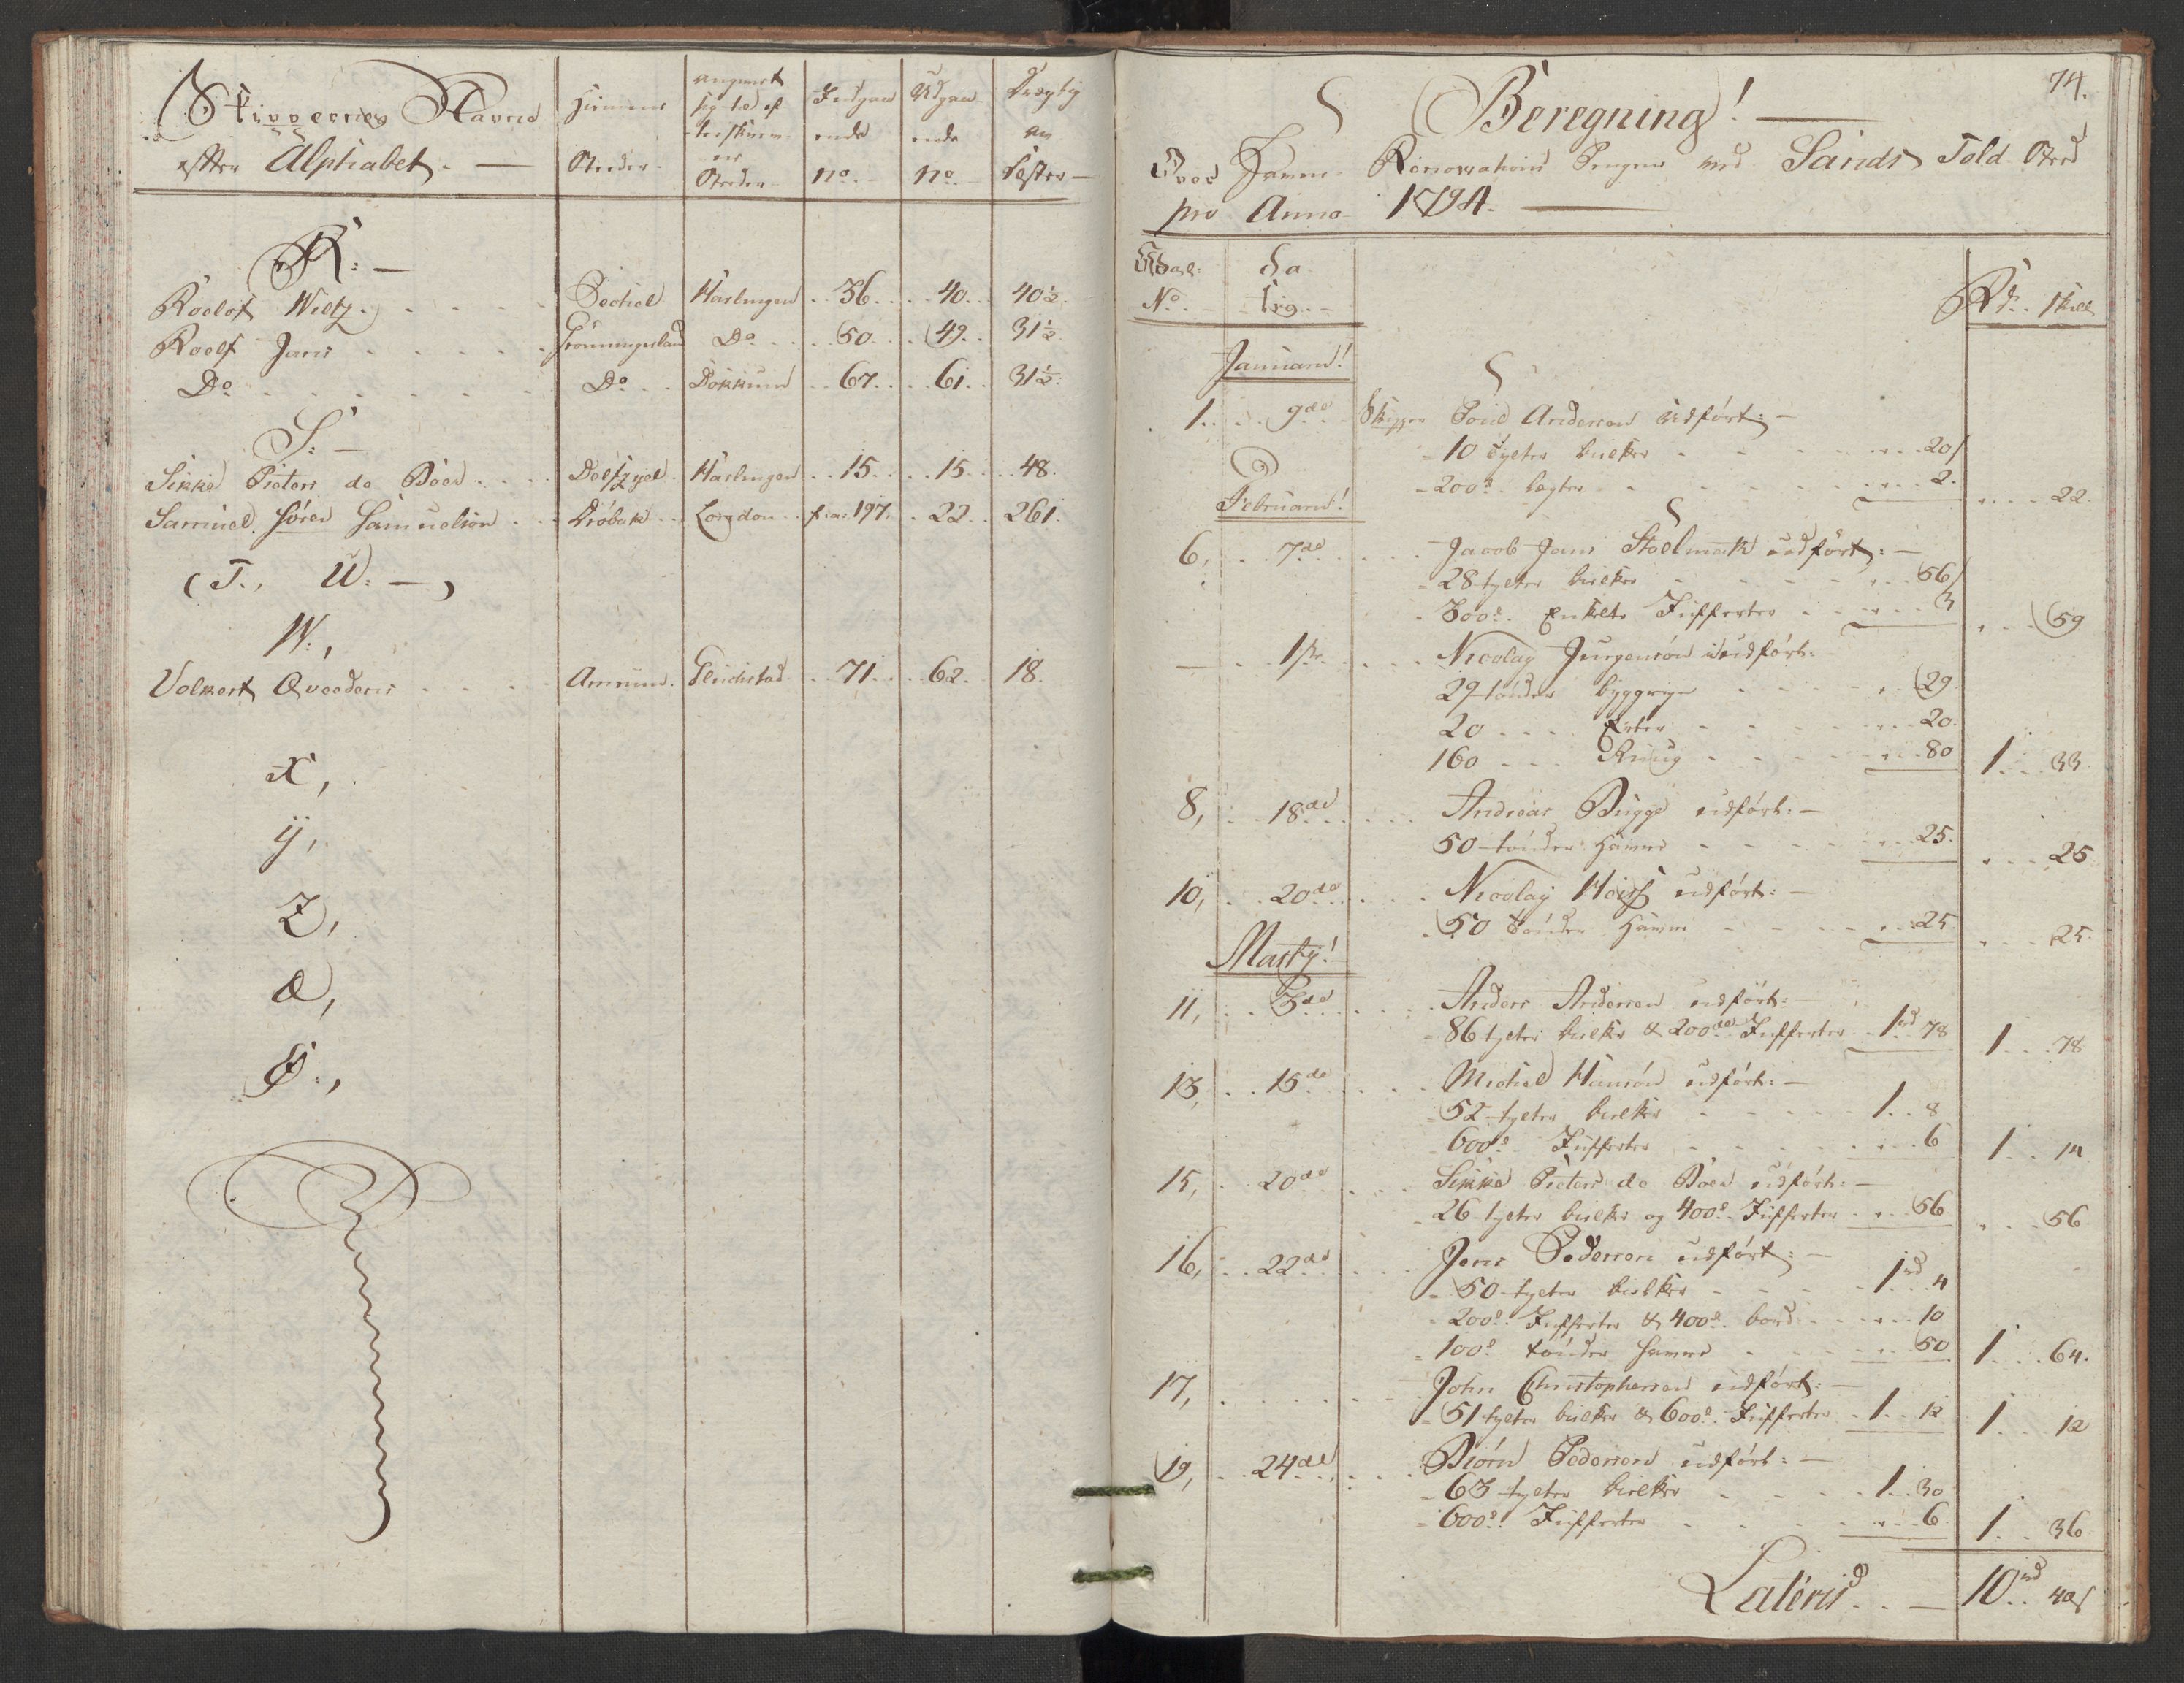 Skippernes Navne
efter Alphabet. —
Hiemme
Steder.
angivet
sig til ef
Steder
Indgaa
ende
No.
Udgaa
ende
No.
Drægtig
Læster —
R: —
Roelof Wiltz . . . . Pechel Harlingen . . 36 . . 40 . . 40½.
Roelf Jans . . . . Grönningerland Do . . 50 . . 49 . . 31½
Do . . . . . . Do . . Dokkum . . 67 . . 61 . . 31½
S: —
Sikke Pieters de Boer . . . Delfzyel Harlingen . . 15 . . 15 . . 48.
Samuel Sören Samuelsen . . Dröbak . . London . . fra: 197 . 22 . . 261.
(T., U: —,
W:,
Volkert Qvedens . . . . Amrum. Glückstad . . 71 . . 62 . . 18.
X,
ÿ,
Z,
Æ,
Ø:,
74.
Beregning! —
Over Havne Renovations Penger ved Sands Told Sted
pro Anno 1794. —
No. Rd. Skill
Januarii!
1. . . 9de Skipper Poul Andersen udfört: —
10 tylter bielker . . . . 20/
200de lægter . . . . 2. . . . 22.
Februarii!
6, . . 7de . . . Jacob Jans Stoelmak udfört: —
28 tylter bielker . . . . 56/
300de Enkelte Jufferter . . . 3 . . . 59
— . . . Nicolay Jurgensön indfört:
29 tönder byggryn . . . . 29
20 . . . Erter . . . . 20.
160 . . . Ruug . . . . 80 1. . . 33.
8, . . 18de . . . Andreas Bugge udfört: —
50 tönder Hummer . . . . 25. . . . 25
10, . . 20de . . . Nicolay udfört: —
50 tönder Hummer . . . . 25. . . . 25.
Martÿ!
11, . . 3de . . . Anders Andersen udfört: —
86 tylter bielker & 200de Jufferter . . 1rd 78 1. . . 78
13, . . 15de . . . Michel Hansön udfört: —
52 tylter bielker . . . . 1. . 8
600de Jufferter . . . . 6 1. . 14
15, . . 20de . . . Sikke Pieters de Boer udfört: —
26 tylter bielker og 400de Jufferter . . 56 . . . 56
16, . . 22de . . . Jens Pedersen udfört: —
50 tylter bielker . . . . 1rd . 4
200de Jufferter & 400de bord . . . 10
100de tönder Hummer . . . . 50 1. . . 64.
17, . . . . John Christophersen udfört: —
51 tylter bielker & 600de Jufferter . . 1. . 12 1. . . 12
19, . . 24de . . . Biörn Pedersen udfört: —
63 tylter bielker . . . . 1. . 30
600de Jufferter . . . . 6. 1. . 36
Lateris . . — 10rd . . 40/